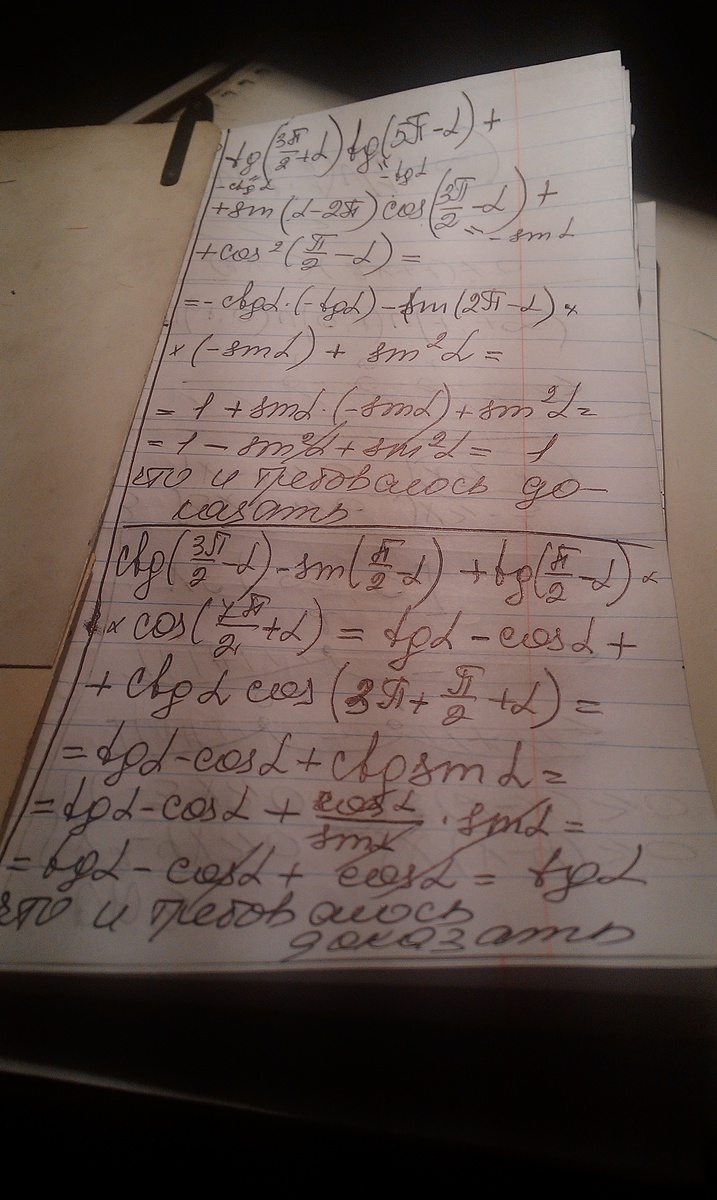 tg(3π/2+α) tg(5π-α)+
-ctgα
=-tgα
+sin(α-2π) cos(3π/2-α)+
=-sinα
+cos²(π/2-α)=
=-ctgα·(-tgα)-sin(2π-α)×
×(-sinα)+ sin²α=
= 1 + sinα·(-sinα)+sin²α=
=1-sin²α+sin²α= 1
что и требовалось до-
казать.
ctg(3π/2-α)-sin(π/2-α) +tg(π/2-α)×
×cos(7π/2+α)= tgα-cosα+
+ ctgα cos(3π+π/2+α)=
=tgα-cosα+ctg sinα=
=tgα-cosα+ cosα/sinα · sinα=
=tgα-cosα+ cosα= tgα
что и требовалось
доказать